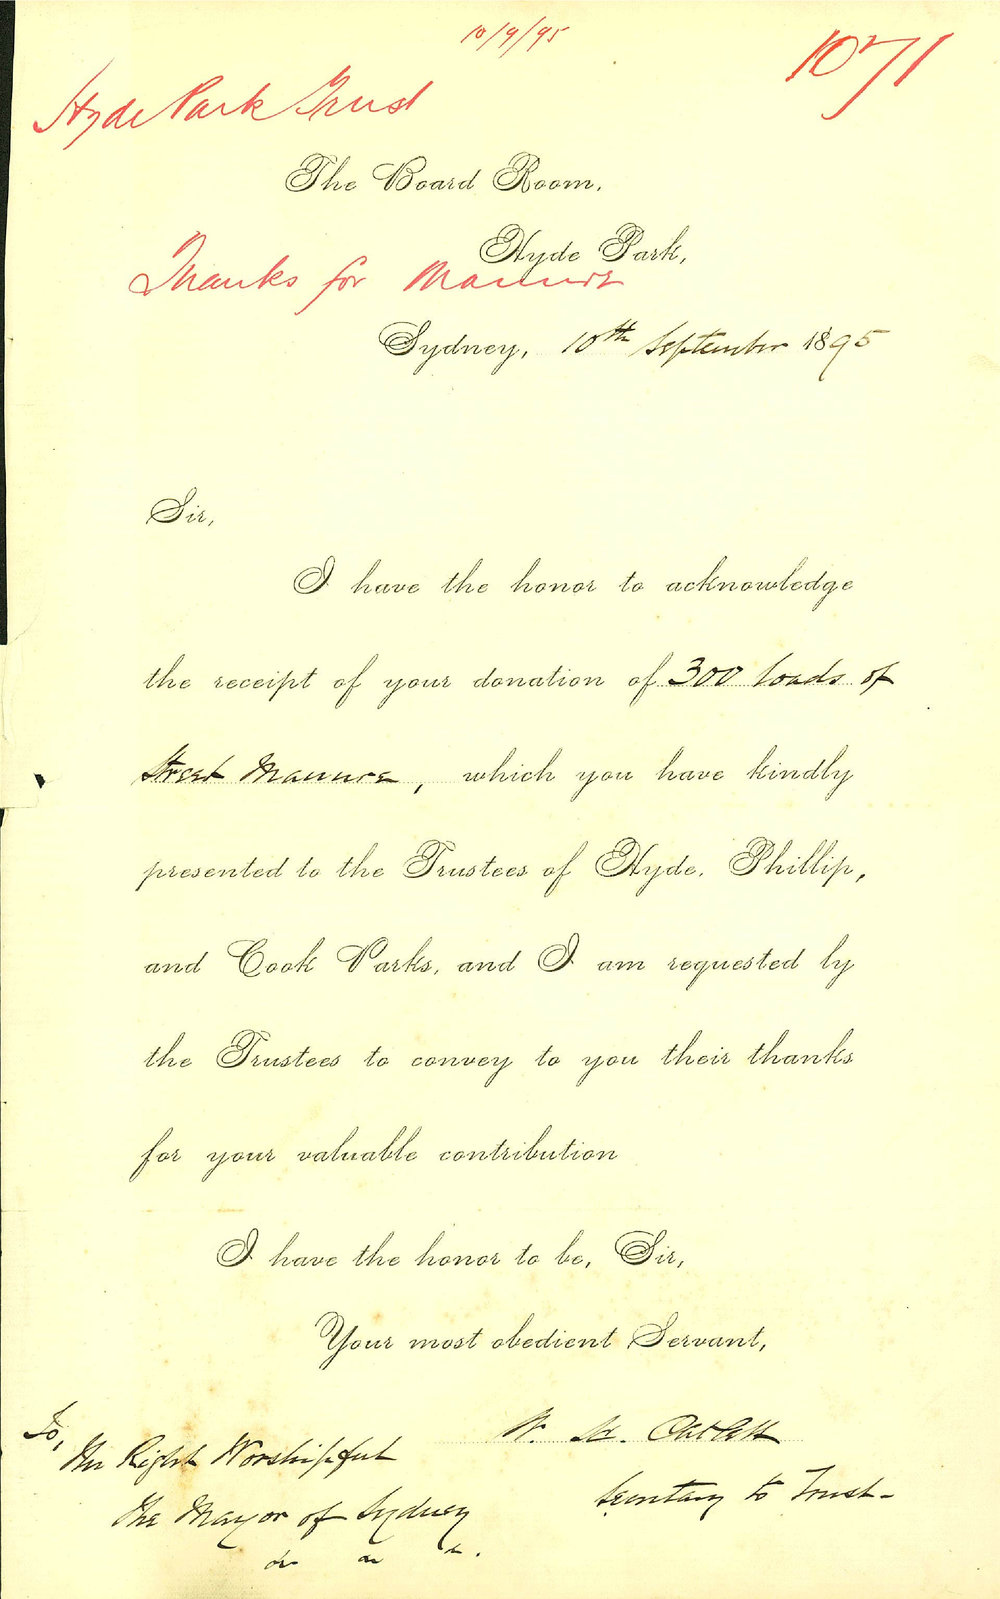 10/9/95
1071
Hyde Park Trust
The Board Room.
Hyde Park,
Thanks for Manure
Sydney, 10th September 1895
Sir,
I have the honor to acknowledge
the receipt of your donation of 300 loads of
Street Manure, which you have kindly
presented to the Trustees of Hyde. Phillip,
and Cook Parks, and I am requested by
the Trustees to convey to you their thanks
for your valuable contribution
I have the honor to be, Sir,
Your most obedient Servant,
W. M. Catlett
Secretary to Trust
To,
The Right Worshipful
The Mayor of Sydney